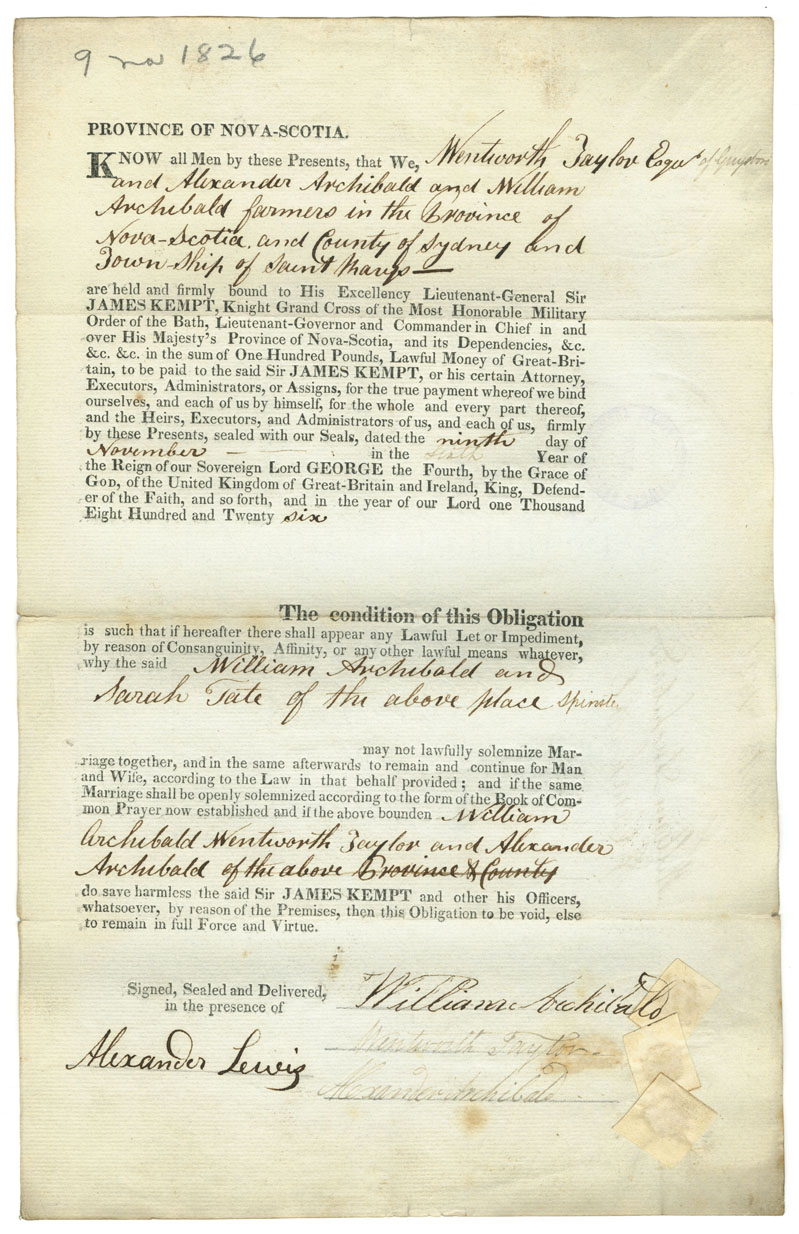 9 nov 1826
PROVINCE OF NOVA-SCOTIA.
KNOW all Men by these Presents, that We, Wentworth Taylor Esqr of Guysboro
and Alexander Archibald and William
Archibald farmers in the Province of
Nova-Scotia, and County of Sydney and
Town Ship of Saint Marys—
are held and firmly bound to His Excellency Lieutenant-General Sir
JAMES KEMPT, Knight Grand Cross of the Most Honorable Military
Order of the Bath, Lieutenant-Governor and Commander in Chief in and
over His Majesty's Province of Nova-Scotia, and its Dependencies, &c.
&c. &c. in the sum of One Hundred Pounds, Lawful Money of Great-Bri-
tain, to be paid to the said Sir JAMES KEMPT, or his certain Attorney,
Executors, Administrators, or Assigns, for the true payment whereof we bind
ourselves, and each of us by himself, for the whole and every part thereof,
and the Heirs, Executors, and Administrators of us, and each of us, firmly
by these Presents, sealed with our Seals, dated the ninth day of
November — in the Year of
the Reign of our Sovereign Lord GEORGE the Fourth, by the Grace of
GOD, of the United Kingdom of Great-Britain and Ireland, King, Defend-
er of the Faith, and so forth, and in the year of our Lord one Thousand
Eight Hundred and Twenty six
The condition of this Obligation
is such that if hereafter there shall appear any Lawful Let or Impediment,
by reason of Consanguinity, Affinity, or any other lawful means whatever,
why the said William Archibald and
Sarah Tate of the above place Spinster
may not lawfully solemnize Mar-
riage together, and in the same afterwards to remain and continue for Man
and Wife, according to the Law in that behalf provided; and if the same
Marriage shall be openly solemnized according to the form of the Book of Com-
mon Prayer now established and if the above bounden William
Archibald Wentworth Taylor and Alexander
Archibald of the above Province & County
do save harmless the said Sir JAMES KEMPT and other his Officers,
whatsoever, by reason of the Premises, then this Obligation to be void, else
to remain in full Force and Virtue.
Signed, Sealed and Delivered,
in the presence of
William Archibald
Wentworth Taylor
Alexander Lewis
Alexander Archibald